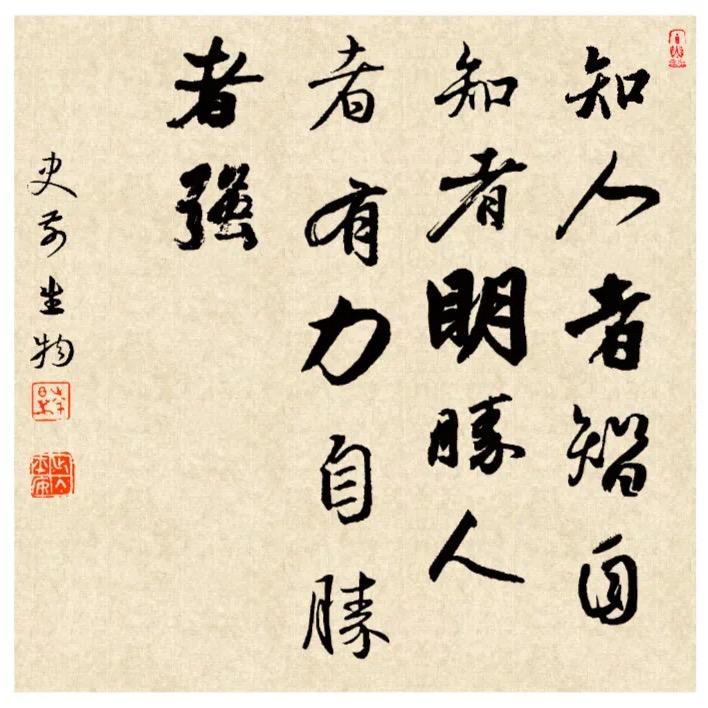 知人者智自
知者明勝人
者有力自勝
者強
史前生物